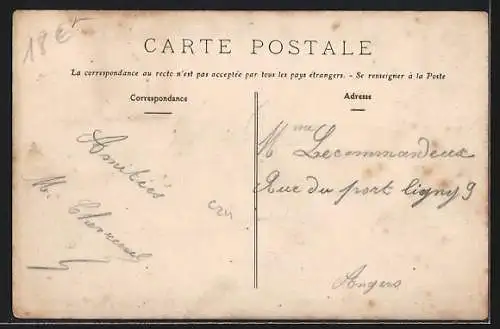 18€
CARTE POSTALE
La correspondance au recto n'est pas acceptée par tous les pays étrangers. - Se renseigner à la Poste
Correspondance
Adresse
Amitiés
M.
Mme Lecommandeux
Rue du port ligny 9
Angers